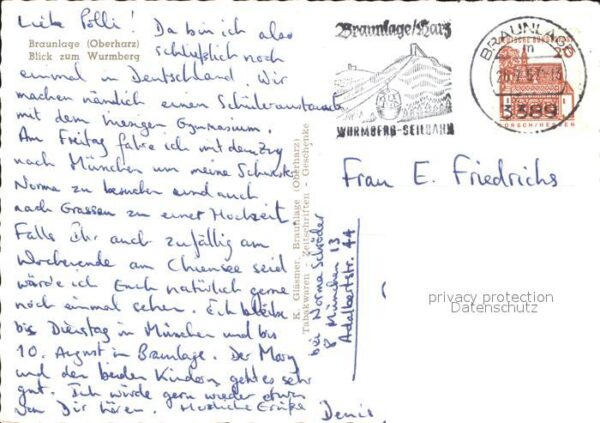 Liebe Polli! Da bin ich also
schließlich noch
einmal in Deutschland. Wir
machen nämlich einen Schüleraustausch
mit dem hiesigen Gymnasium.
Am Freitag fahre ich mit dem Zug
nach München um meine Schwester
Norma zu besuchen und auch
nach Grassau zu einer Hochzeit.
Falls Ihr auch zufällig am
Wochenende am Chiemsee seid
würde ich Euch natürlich gerne
noch einmal sehen. Ich bleibe
bis Dienstag in München und bis
10. August in Braunlage. Der Mary
und den beiden Kindern geht es sehr
gut. Ich würde gern wieder etwas
von Dir hören. Herzliche Grüße
Denis
Braunlage (Oberharz)
Blick zum Wurmberg
K. Gläsmer, Braunlage (Oberharz)
Tabakwaren - Zeitschriften - Geschenke
bei Norma Schröder
8 München 13
Adalbertstr. 44
Braunlage/Harz
WURMBERG-SEILBAHN
BRAUNLAGE
m
3389
LORSCH/HESSEN
Frau E. Friedrichs
privacy protection
Datenschutz